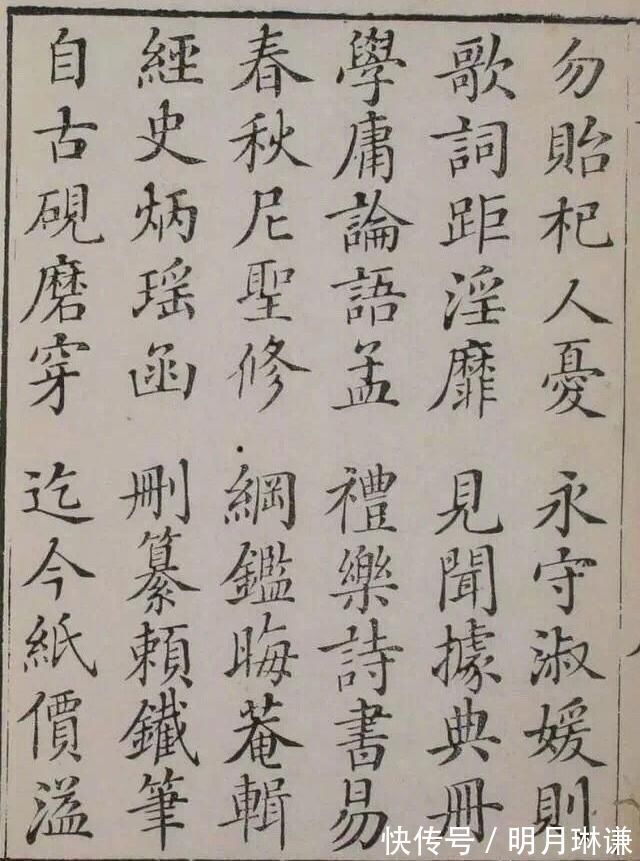 勿貽杞人憂　永守淑媛則
歌詞距淫靡　見聞據典冊
學庸論語孟　禮樂詩書易
春秋尼聖修　綱鑑晦菴輯
經史炳瑶函　刪纂賴鐵筆
自古硯磨穿　迄今紙價溢
快传号 / 明月琳谦